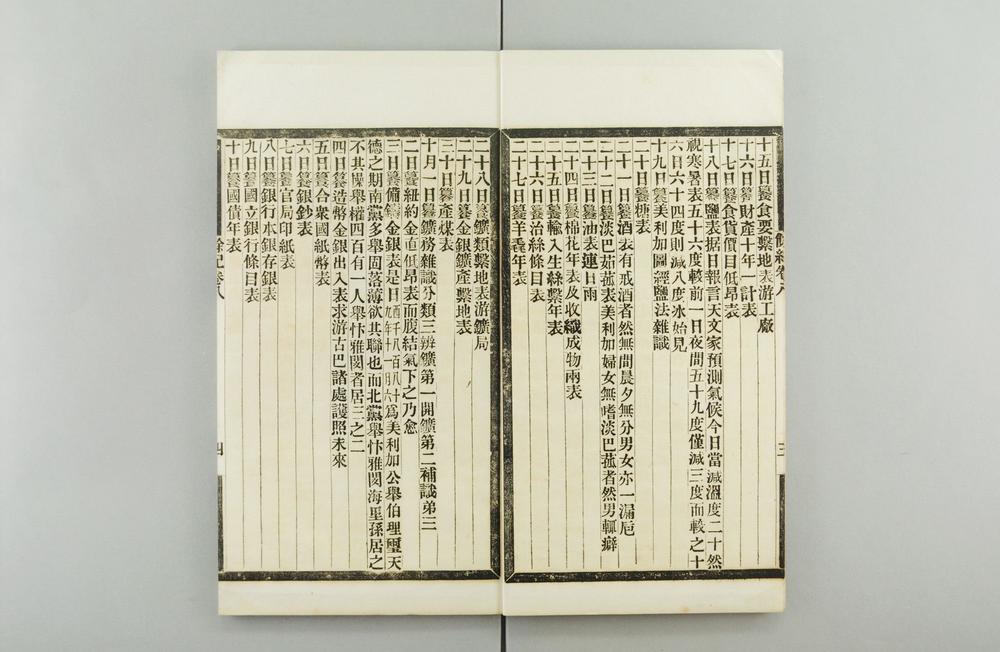 十五日篹食要繫地表游工廠
十六日篹財產十年一計表
十七日篹食貨價目低昂表
十八日篹鹽表据日報言天文家預測氣候今日當減溫度二十然
視寒暑表五十六度較前一日夜間五十九度僅減三度而較之十
六日六十四度則減八度氷始見
十九日篹美利加圖經鹽法雜識
二十日篹糖表
二十一日篹酒表有戒酒者然無間晨夕無分男女亦一漏卮
二十二日篹淡巴菰表美利加婦女無嗜淡巴菰者然男輒癖
二十三日篹油表連日雨
二十四日篹棉花年表及收織成物兩表
二十五日篹輸入生絲繫年表
二十六日篹治絲條目表
二十七日篹羊毳年表
餘紀卷八
三
二十八日篹鑛類繫地表游鑛局
二十九日篹金銀鑛產繫地表
三十日篹產煤表
十月一日篹鑛務雜識分類三辨鑛第一開鑛第二補識弟三
二日篹紐約金直低昂表而腹結氣下之乃愈
三日篹備鑄金銀表是日西千八百八十九年十一月六爲美利加公舉伯理璽天
德之期南黨多舉固落薄欲其聯也而北黨舉忭雅閔海星孫居之
不其操舉權四百有一人舉忭雅閔者居三之二
四日篹造幣金銀出入表求游古巴諸處護照未來
五日篹合衆國紙幣表
六日篹銀鈔表
七日篹官局印紙表
八日篹銀行本銀存銀表
九日篹國立銀行條目表
十日篹國債年表
餘紀卷八
四